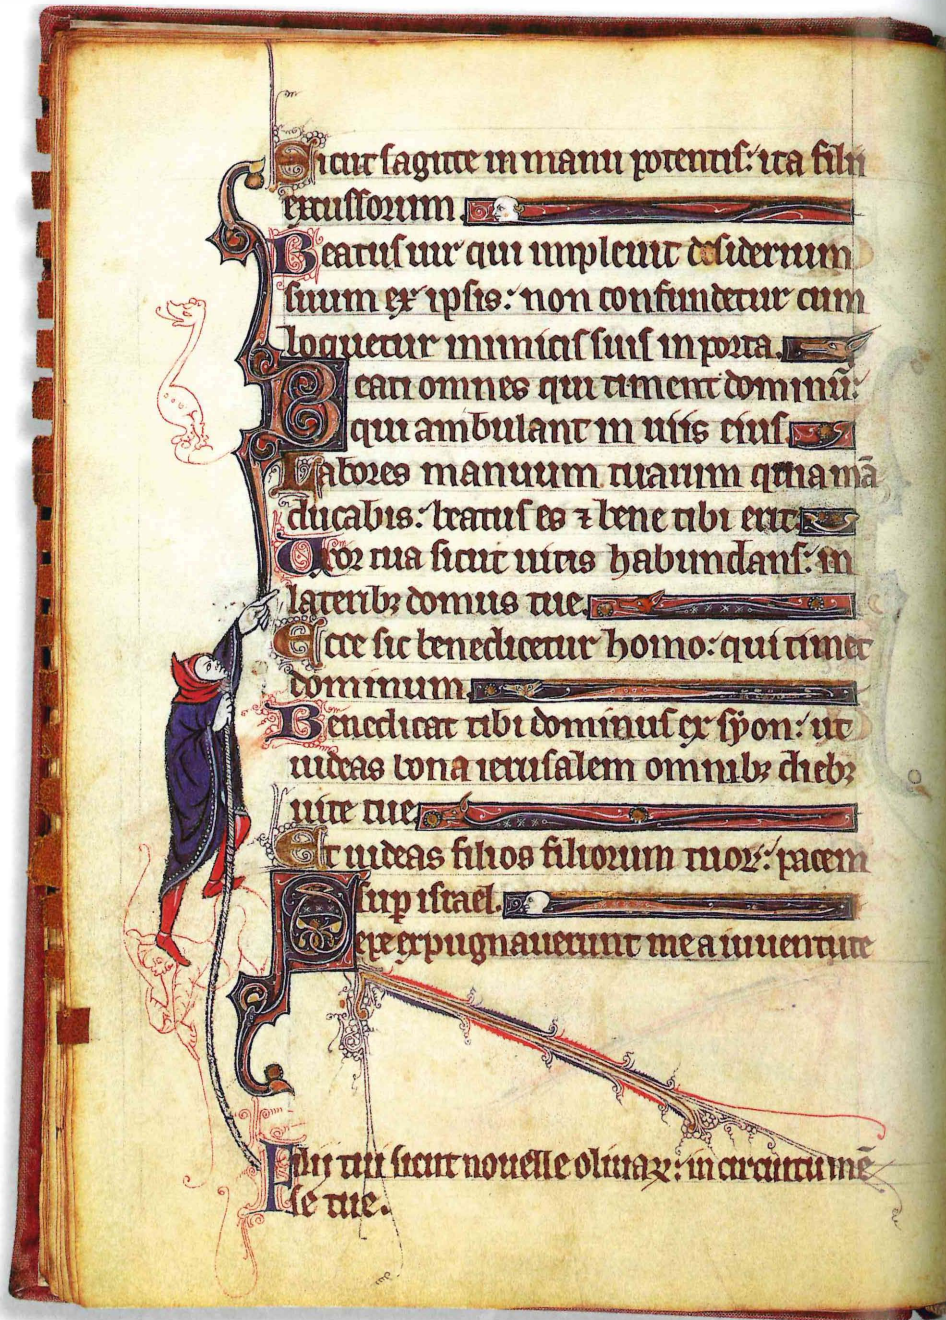 Sicut sagitte in manu potentis: ita filii
excussorum.
Beatus uir qui impleuit desiderium
suum ex ipsis: non confundetur cum
loquetur inimicis suis in porta.
Beati omnes qui timent dominū:
qui ambulant in uiis eius.
Labores manuum tuarum quia mā
ducabis: beatus es ⁊ bene tibi erit.
Uxor tua sicut uitis habundans: in
lateribꝫ domus tue.
Ecce sic benedicetur homo: qui timet
dominum.
Benedicat tibi dominus ex syon: ut
uideas bona ierusalem omnibꝫ diebꝫ
uite tue.
Et uideas filios filiorum tuoꝝ: pacem
sup israel.
Sepe expugnauerunt me a iuuentute
Filij tui sicut nouelle oliuaꝝ: in circuitu mē
se tue.